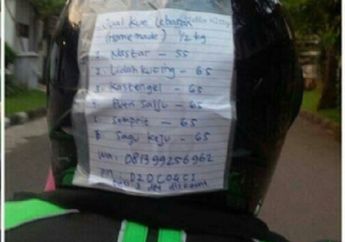 Jual kue lebaran
(home made) 1/2 kg
1. Nastar - 55
2. Lidah kucing - 65
3. Kastengel - 65
4. Putri Salju - 65
5. Semprit - 65
6 Sagu keju - 65
WA: 081399256962